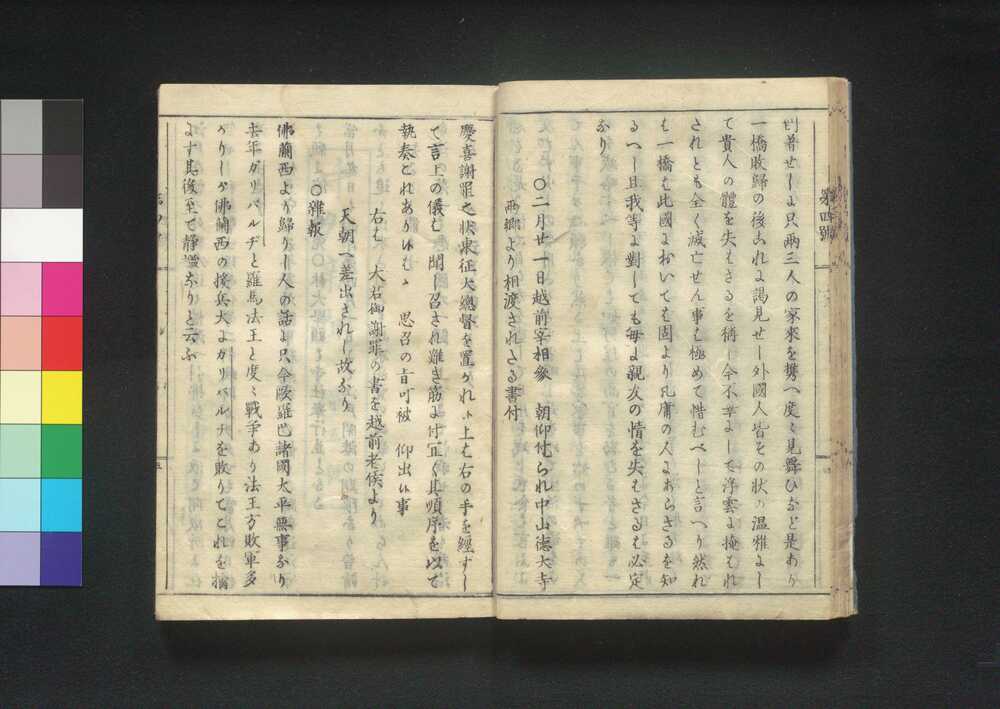 第四號
到着せしに只兩三人の家來を攜へ度々見舞ひなど是あり
一橋敗歸の後これに謁見せし外國人皆その状の温雅にし
て貴人の體を失はざるを稱し今不幸にして浮雲に掩はれ
されども全く滅亡せん事は極めて惜むべしと言へり然れ
ば一橋は此國においても固より凡庸の人にあらざるを知
るべし且我等に對しても毎に親友の情を失はざるは必定
なり
〇二月廿一日越前宰相參 朝仰付られ中山徳大寺
兩卿より相渡されたる書付
慶喜謝罪之状東征大總督を置かれ候上は右の手を經ずし
て言上の儀は聞し召され難き筋に付正く其順序を以て
執奏これあり候はゞ 思召の旨可被 仰出候事
右は 大君御謝罪の書を越前老侯より
天朝へ差出されし故なり
〇雜報
佛蘭西より歸りし人の話に只今歐羅巴諸國太平無事なり
去年ガリバルヂと羅馬法王と度々戰爭あり法王方敗軍多
かりしが佛蘭西の援兵大にガリバルヂを敗りてこれを擒
にす其後至て靜謐なりと云ふ